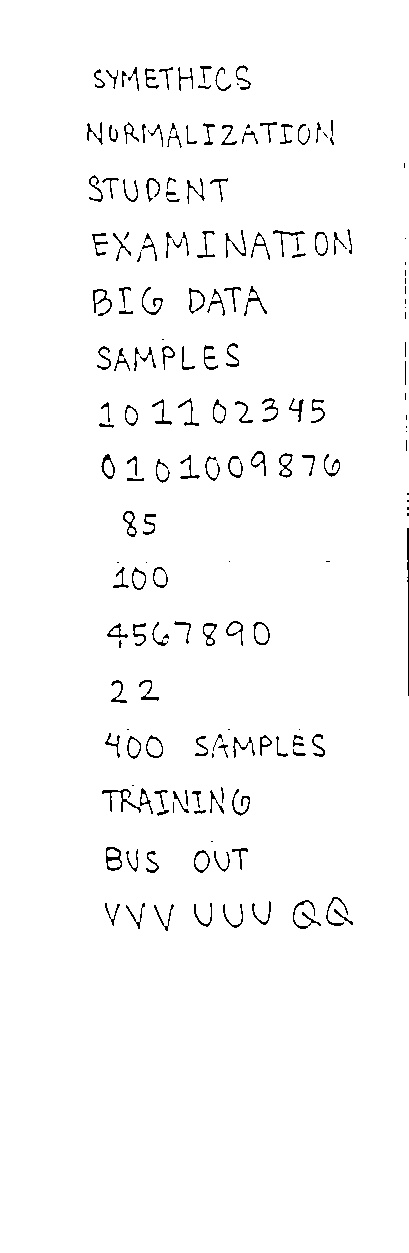 SYMETHICS
NORMALIZATION
STUDENT
EXAMINATION
BIG DATA
SAMPLES
101102345
0101009876
85
100
4567890
22
400 SAMPLES
TRAINING
BUS OUT
VVV UUU QQ